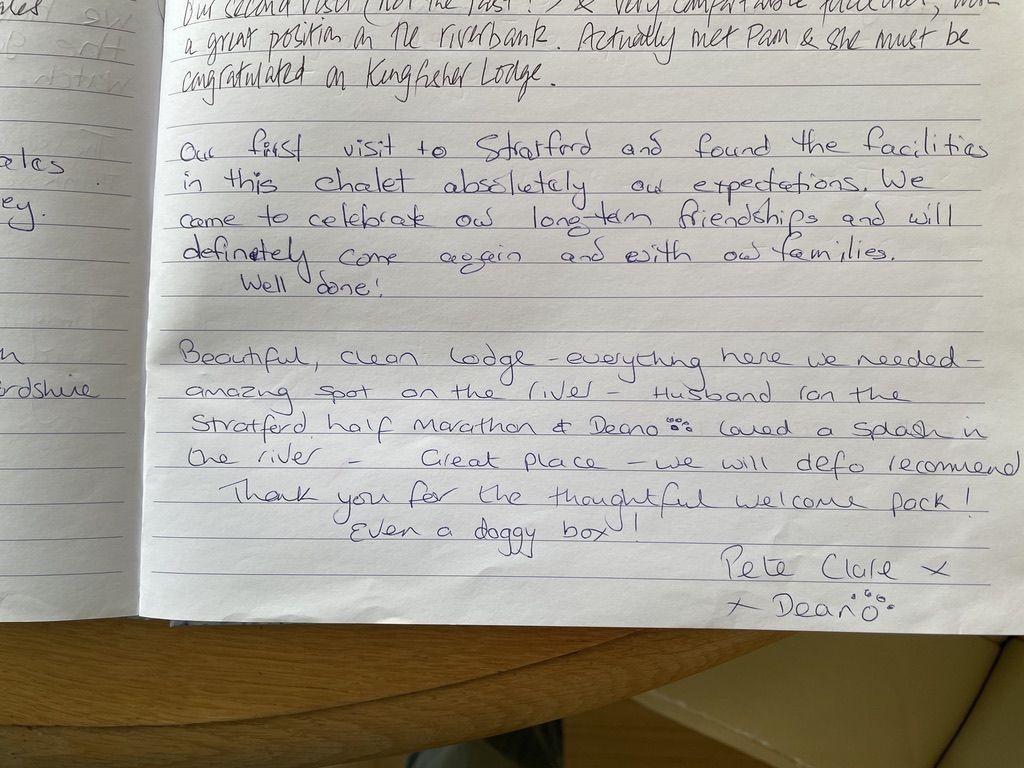 ales
Our second visit (not the last!) & very comfortable facilities, with
a great position on the riverbank. Actually met Pam & she must be
congratulated on Kingfisher Lodge.
ales
ey.
Our first visit to Stratford and found the facilities
in this chalet absolutely our expectations. We
came to celebrate our long-term friendships and will
definetely come again and with our families.
Well done!
n
rdshire
Beautiful, clean lodge - everything here we needed -
amazing spot on the river - Husband ran the
Stratferd half marathon & Deano loved a splash in
the river - Great place - we will defo recommend
Thank you for the thoughtful welcome pack!
Even a doggy box!
Pete Clare x
x Deano